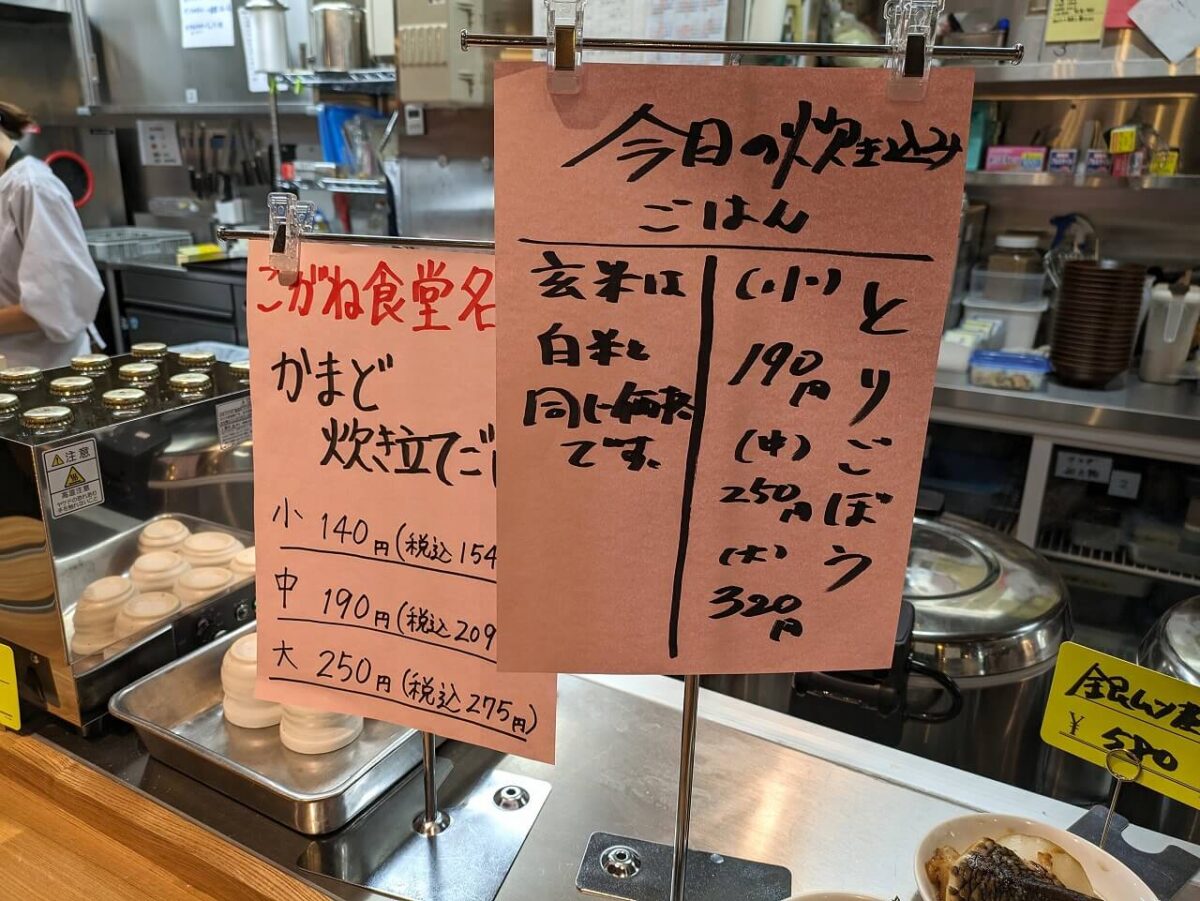 こがね食堂名
かまど
炊き立てご
小 140円(税込154
中 190円(税込209
大 250円(税込275円)
今日の炊き込み
ごはん
とりごぼう
(小)
190円
(中)
250円
(大)
320円
玄米は
白米と
同じ価格
です。
注意
高温注意
¥580